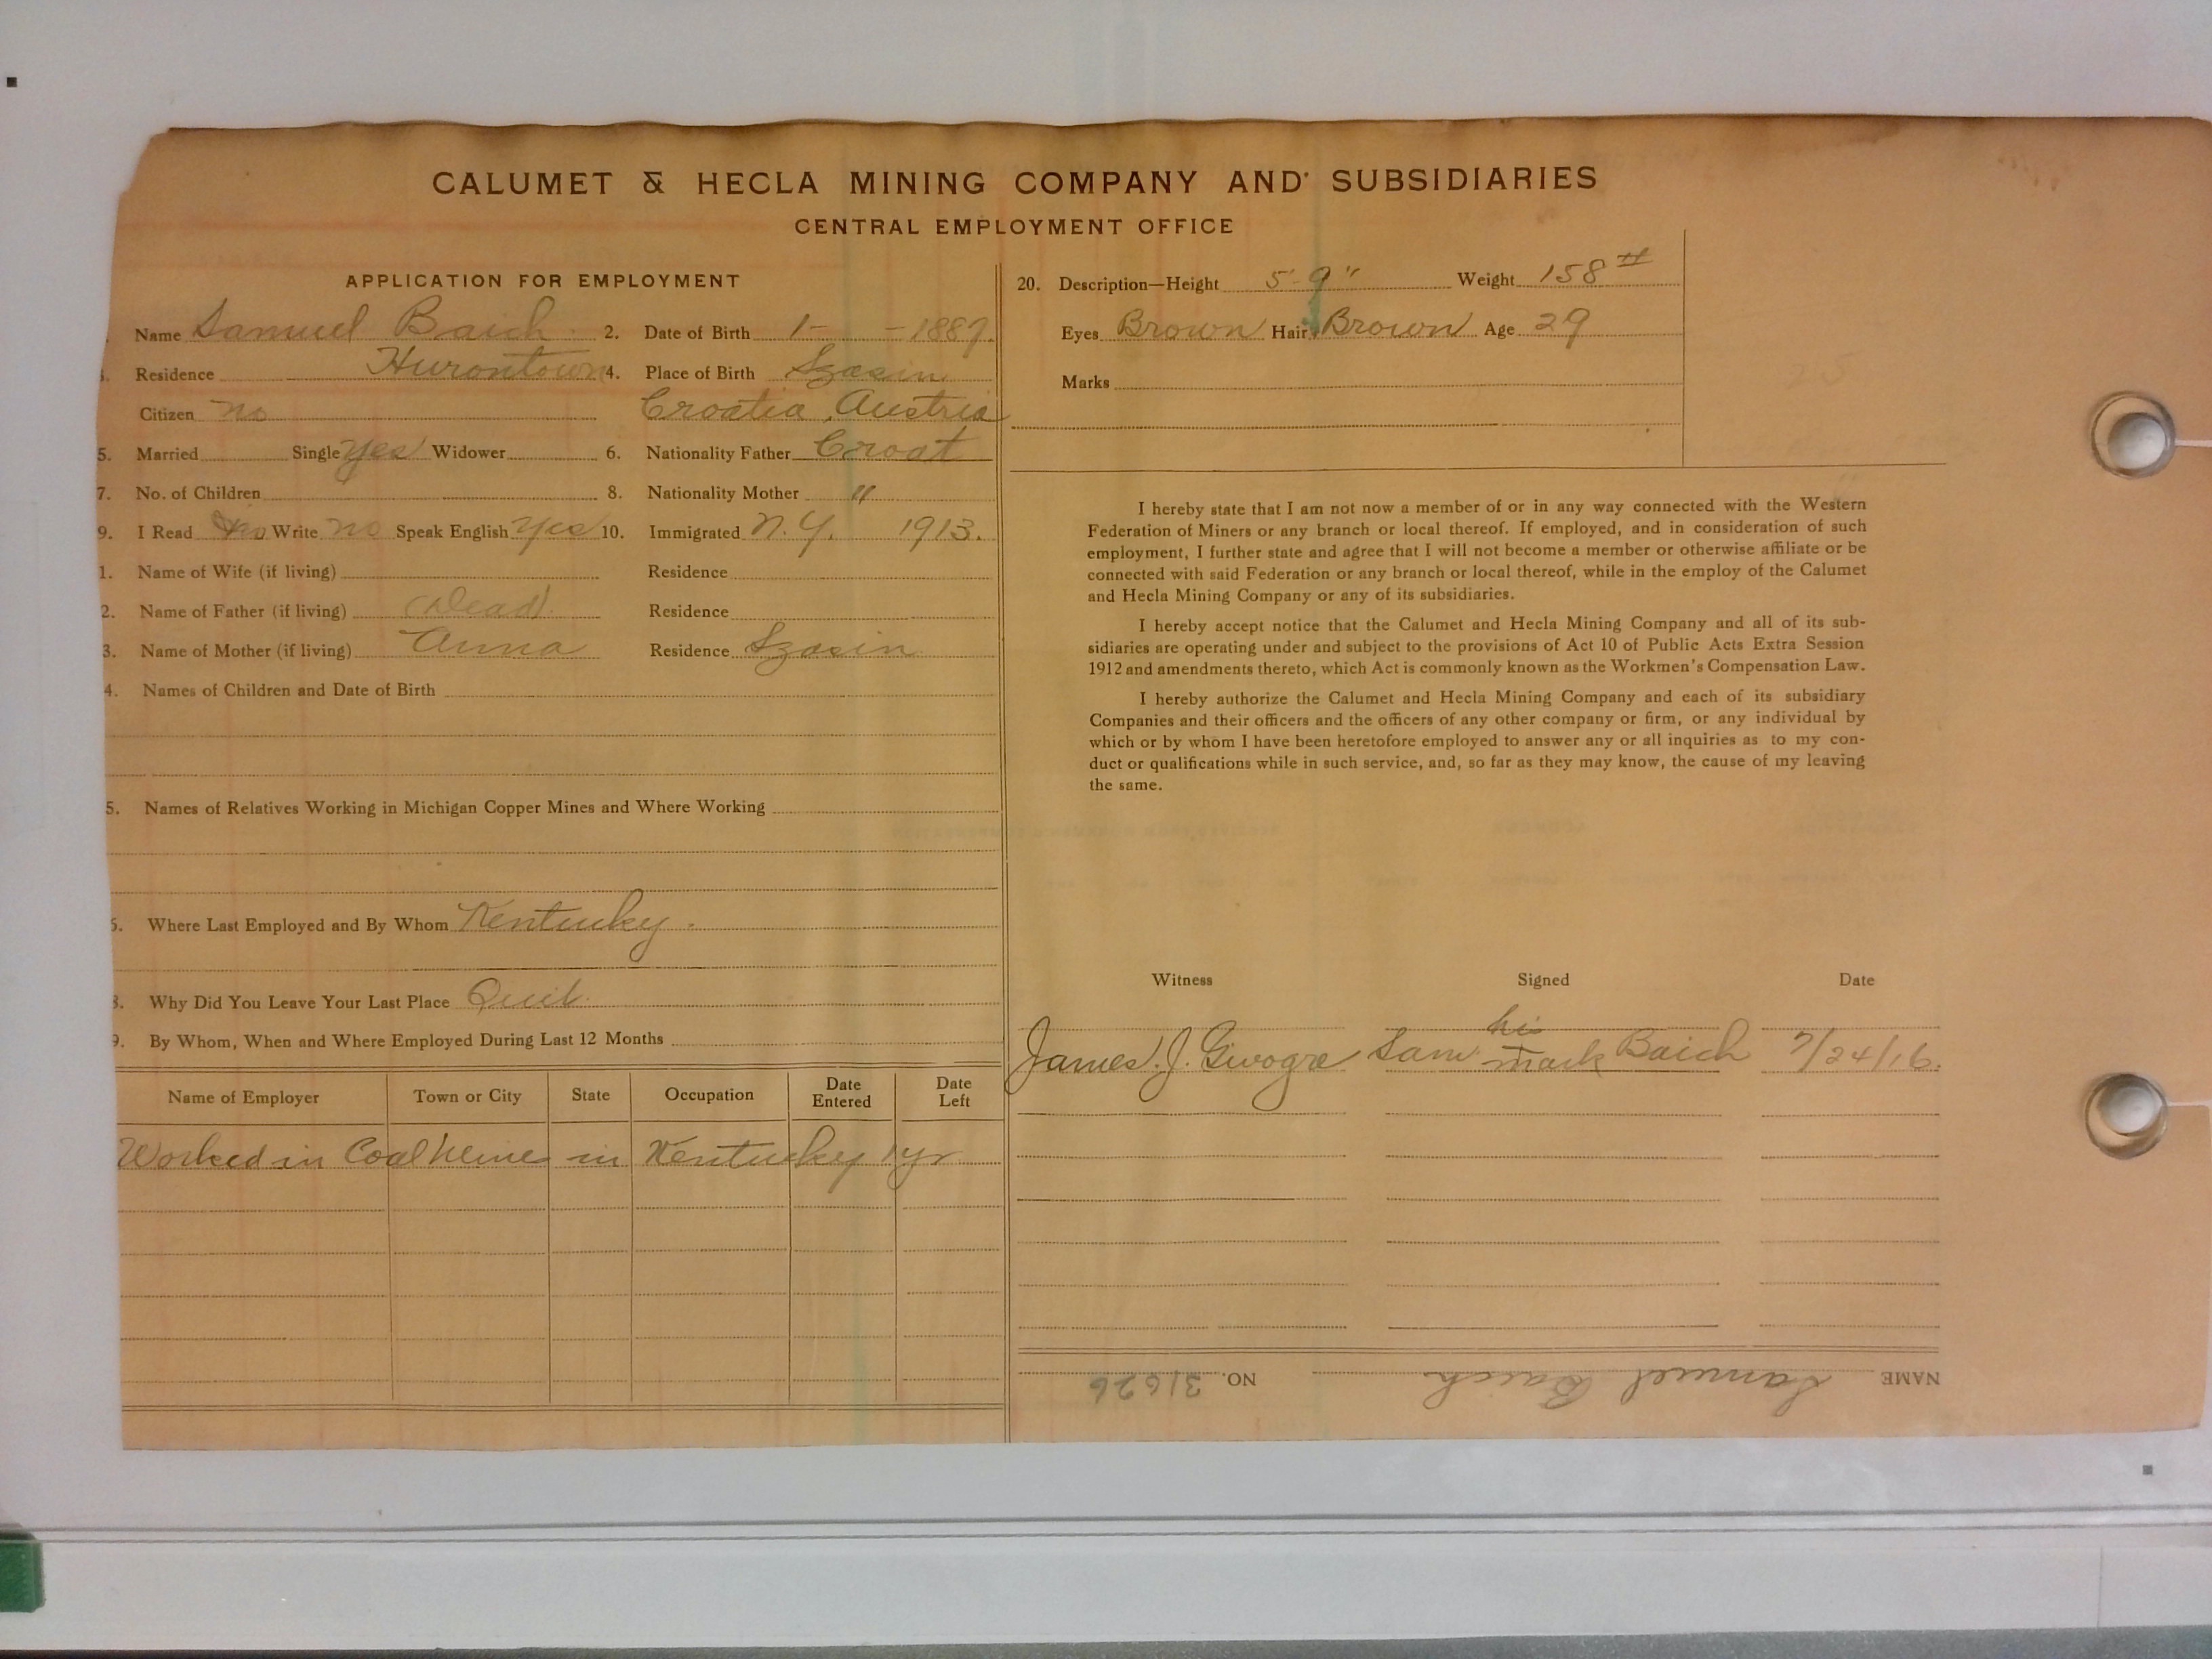 CALUMET & HECLA MINING COMPANY AND SUBSIDIARIES
CENTRAL EMPLOYMENT OFFICE
APPLICATION FOR EMPLOYMENT
Name Samuel Baich 2. Date of Birth 1- -1887.
Residence Hurontown 4. Place of Birth Szasin
Citizen no Croatia, Austria
5. Married Single yes Widower 6. Nationality Father Croat
7. No. of Children 8. Nationality Mother "
9. I Read no Write no Speak English yes 10. Immigrated N.Y. 1913.
1. Name of Wife (if living) Residence
2. Name of Father (if living) (Dead) Residence
3. Name of Mother (if living) Anna Residence Szasin
4. Names of Children and Date of Birth
5. Names of Relatives Working in Michigan Copper Mines and Where Working
6. Where Last Employed and By Whom Kentucky.
8. Why Did You Leave Your Last Place Quit.
9. By Whom, When and Where Employed During Last 12 Months
Name of Employer Town or City State Occupation Date Entered Date Left
Worked in Coal Mine in Kentucky 1 yr
20. Description—Height 5-9" Weight 158#
Eyes Brown Hair Brown Age 29
Marks
I hereby state that I am not now a member of or in any way connected with the Western
Federation of Miners or any branch or local thereof. If employed, and in consideration of such
employment, I further state and agree that I will not become a member or otherwise affiliate or be
connected with said Federation or any branch or local thereof, while in the employ of the Calumet
and Hecla Mining Company or any of its subsidiaries.
I hereby accept notice that the Calumet and Hecla Mining Company and all of its sub-
sidiaries are operating under and subject to the provisions of Act 10 of Public Acts Extra Session
1912 and amendments thereto, which Act is commonly known as the Workmen's Compensation Law.
I hereby authorize the Calumet and Hecla Mining Company and each of its subsidiary
Companies and their officers and the officers of any other company or firm, or any individual by
which or by whom I have been heretofore employed to answer any or all inquiries as to my con-
duct or qualifications while in such service, and, so far as they may know, the cause of my leaving
the same.
Witness Signed Date
his
James J. Givogre Sam mark Baich 7/24/16.
NAME Samuel Baich NO. 31626